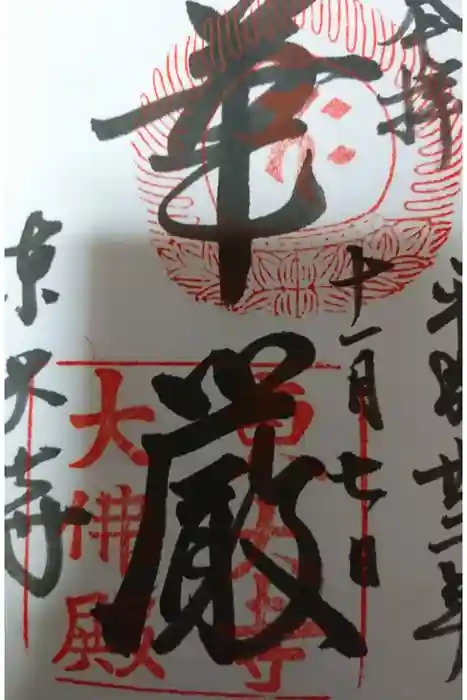 奉拝
平成廿二年
十一月七日
華厳
東大寺
東大寺
大佛殿